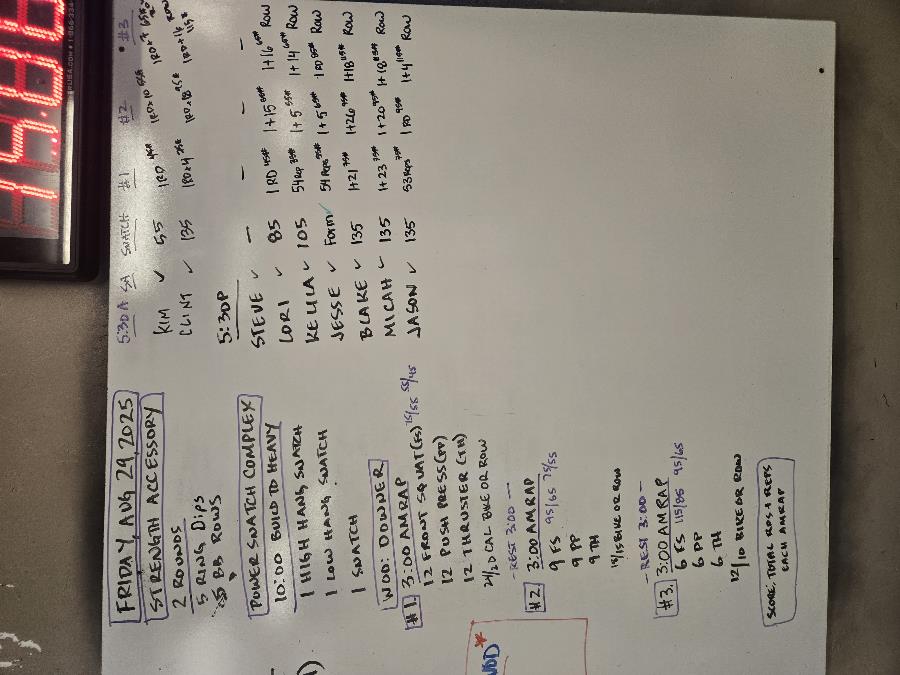 FRIDAY, AUG 29, 2025
STRENGTH ACCESSORY
2 ROUNDS
5 RING Dips
5 BB ROWS
POWER SNATCH COMPLEX
10:00 BUILD TO HEAVY
1 HIGH HANG SNATCH
1 LOW HANG SNATCH
1 SNATCH
WOD: DOWNER
#1. 3:00 AMRAP
12 FRONT SQUAT (FS) 75/55 55/45
12 PUSH PRESS (PP)
12 THRUSTER (TH)
24/20 CAL BIKE OR ROW
- REST 3:00 -
#2 3:00 AMRAP
9 FS 95/65 75/55
9 PP
9 TH
18/15 BIKE OR ROW
- REST 3:00 -
#3. 3:00 AMRAP
6 FS 115/85 95/65
6 PP
6 TH
12/10 BIKE OR ROW
SCORE: TOTAL RDS + REPS
EACH AMRAP
5:30A SA SNATCH #1 #2 #3
KIM ✓ 55 1RD 45# 1RD+10 55#
CLINT ✓ 135 1RD+4 75# 1RD+18 95# 115#
5:30P
STEVE ✓ — — — —
LORI ✓ 85 1RD 45# 1+15 1+16 65# ROW
KELLIA ✓ 105 54 Rep 1+5 55# 1+14 65# ROW
JESSE ✓ Form ✓ 54 Reps 55# 1+5 65# 1RD 85# ROW
BLAKE ✓ 135 1+21 75# 1+26 95# 1+18 115# ROW
MICAH ✓ 135 1+23 75# 1+20 95# 1+18 ROW
JASON ✓ 135 53 Reps 75# 1RD 95# 1+4 115# ROW